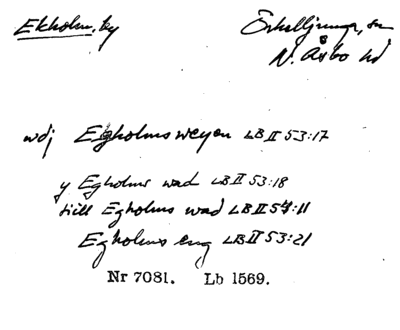 Ekholm, by Örkelljunga, sn
N. Åsbo hd
wdj Egholms weyen LB II 53:17
y Egholms wad LB II 53:18
till Egholms wad LB II 54:11
Egholms eng LB II 53:21
Nr 7081. Lb 1569.